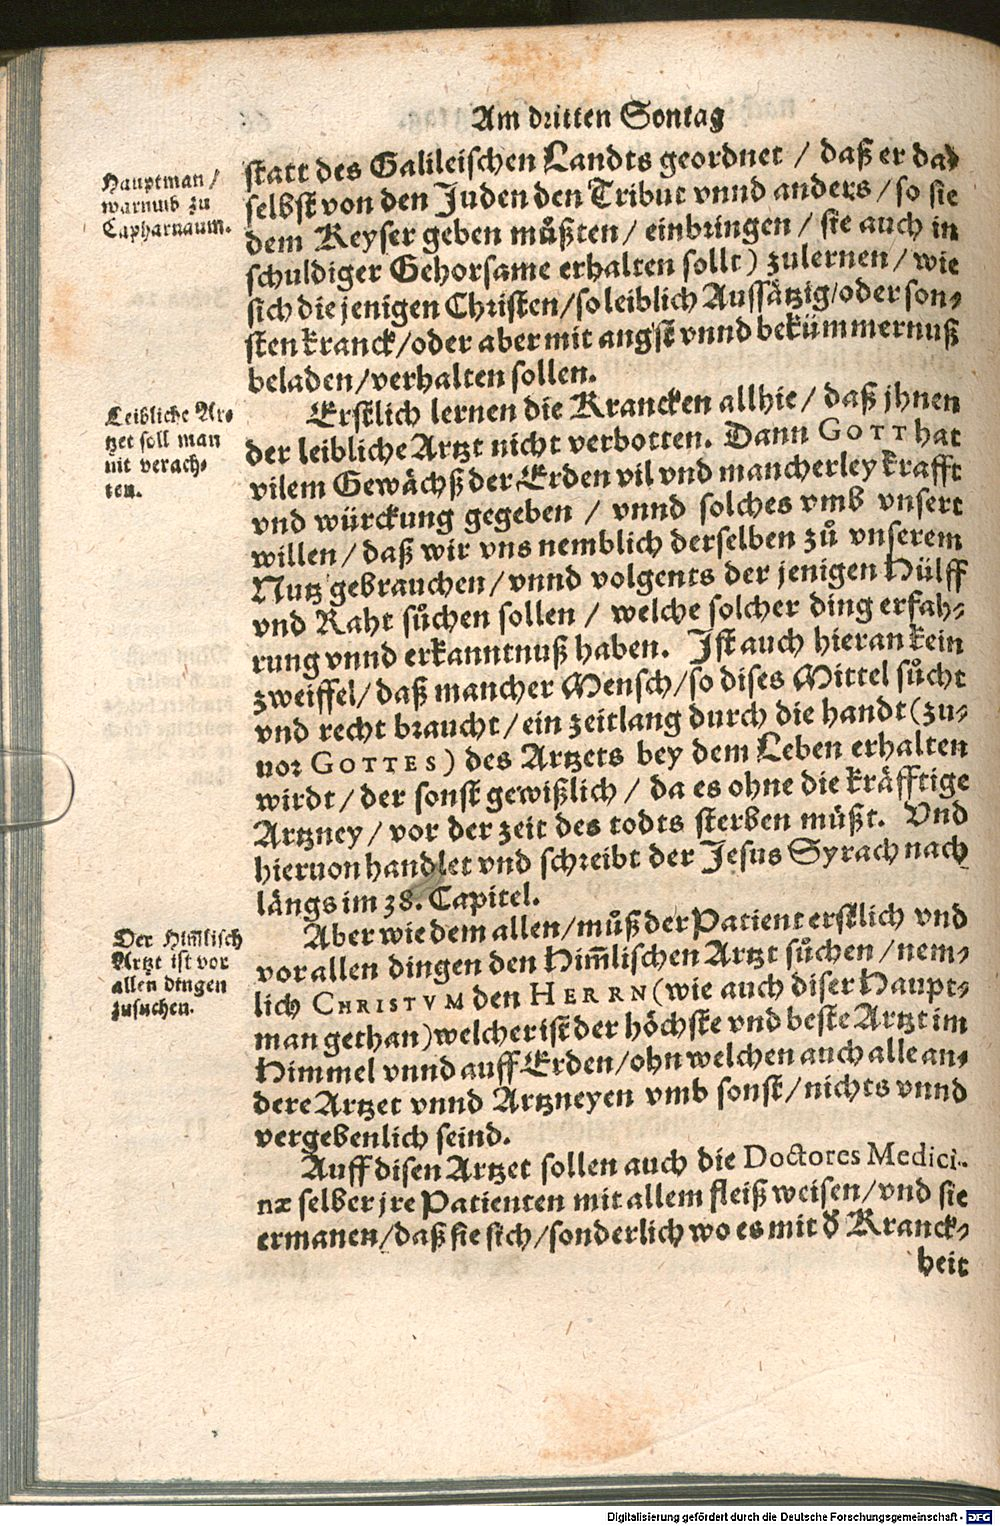 Am dritten Sontag
Hauptman /
warumb zu
Capharnaum.
statt des Galileischen Landts geordnet / daß er da
selbst von den Juden den Tribut vnnd anders / so sie
dem Keyser geben müßten / einbringen / sie auch in
schuldiger Gehorsame erhalten sollt) zulernen / wie
sich die jenigen Christen / so leiblich Aussätzig / oder son⸗
sten kranck / oder aber mit angst vnnd bekümmernuß
beladen / verhalten sollen.
Leibliche Ar⸗
tzet soll man
nit verach⸗
ten.
Erstlich lernen die Krancken allhie / daß jhnen
der leibliche Artzt nicht verbotten. Dann GOTT hat
vilem Gewächß der Erden vil vnd mancherley krafft
vnd würckung gegeben / vnnd solches vmb vnsert
willen / daß wir vns nemblich derselben zů vnserem
Nutz gebrauchen / vnnd volgents der jenigen Hülff
vnd Raht sůchen sollen / welche solcher ding erfah⸗
rung vnnd erkanntnuß haben. Ist auch hieran kein
zweiffel / daß mancher Mensch / so dises Mittel sůcht
vnd recht braucht / ein zeitlang durch die handt (zu⸗
uor GOTTES) des Artzets bey dem Leben erhalten
wirdt / der sonst gewißlich / da es ohne die kräfftige
Artzney / vor der zeit des todts sterben müßt. Vnd
hieruon handlet vnd schreibt der Jesus Syrach nach
längs im 38. Capitel.
Der Him̃lisch
Artzt ist vor
allen dingen
zusuchen.
Aber wie dem allen / můß der Patient erstlich vnd
vor allen dingen den Him̃lischen Artzt sůchen / nem⸗
lich CHRISTVM den HERRN (wie auch diser Haupt⸗
man gethan) welcher ist der höchste vnd beste Artzt im
Himmel vnnd auff Erden / ohn welchen auch alle an⸗
dere Artzet vnnd Artzneyen vmb sonst / nichts vnnd
vergebenlich seind.
Auff disen Artzet sollen auch die Doctores Medici⸗
næ selber jre Patienten mit allem fleiß weisen / vnd sie
ermanen / daß sie sich / sonderlich wo es mit d̾ Kranck⸗
heit
Digitalisierung gefördert durch die Deutsche Forschungsgemeinschaft - DFG